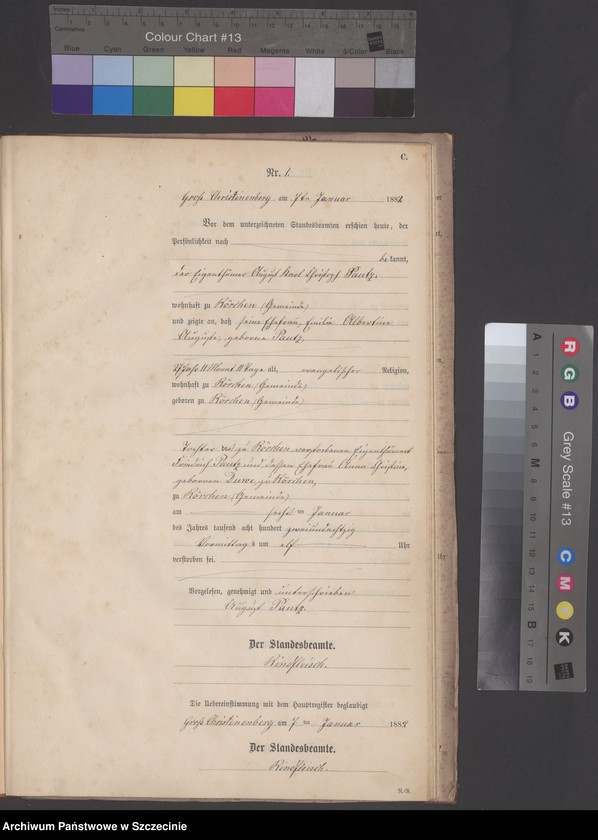 Inches
Centimetres
Colour Chart #13
Blue Cyan Green Yellow Red Magenta White 3/Color Black
C.
Nr. 1.
Gross Christinenberg am 7ten Januar 1882
Vor dem unterzeichneten Standesbeamten erschien heute, der
Persönlichkeit nach
bekannt,
der Eigenthümer August Karl Christoph Pautz,
wohnhaft zu Rörchen (Gemeinde)
und zeigte an, daß seine Ehefrau, Emilie Albertine
Auguste, geborene Pautz,
Jahr 11 Monat Tage alt, evangelischer Religion,
wohnhaft zu Rörchen (Gemeinde)
geboren zu Rörchen (Gemeinde)
Tochter des zu Rörchen verstorbenen Eigenthümers
Friedrich Pautz und dessen Ehefrau Anna Christine,
geborenen Duwe, zu Rörchen,
zu Rörchen (Gemeinde)
am sechsten Januar
des Jahres tausend acht hundert zweiundachtzig
Vormittags um elf Uhr
verstorben sei.
Vorgelesen, genehmigt und unterschrieben
August Pautz.
Der Standesbeamte.
Rindfleisch.
Die Uebereinstimmung mit dem Hauptregister beglaubigt
Gross Christinenberg am 7ten Januar 1882
Der Standesbeamte.
Rindfleisch.
Grey Scale #13
R G B
C M Y K
A 1 2 3 4 5 6 M 8 9 10 11 12 13 14 15 B 17 18 19
Archiwum Państwowe w Szczecinie